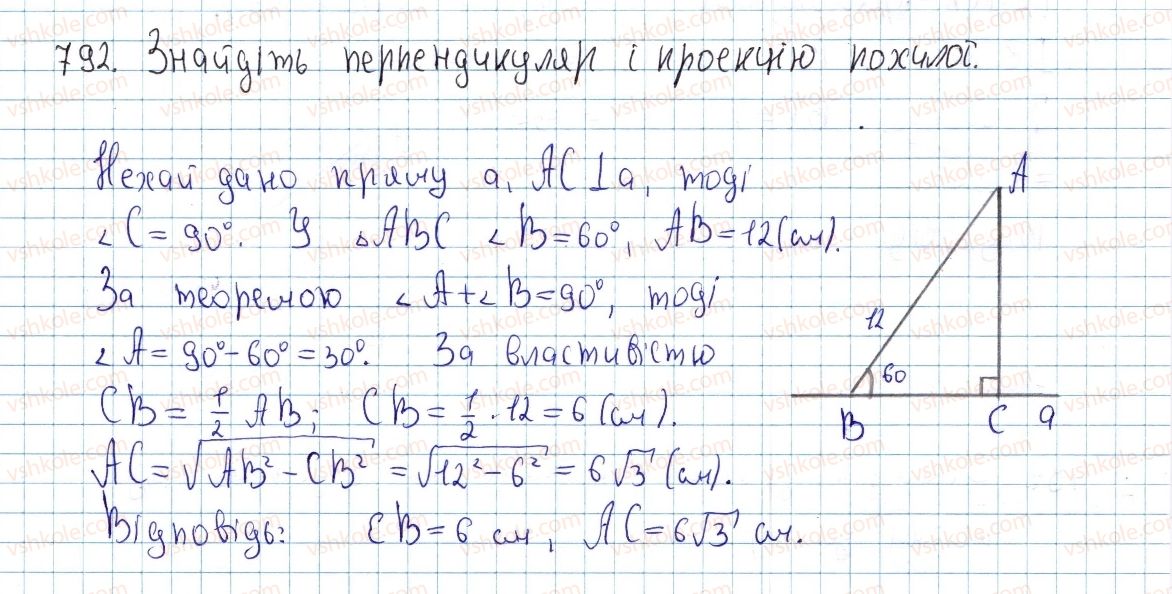 792. Знайдіть перпендикуляр і проекцію похилої.
Нехай дано пряму a, AC⊥a, тоді
∠C = 90°. У ΔABC ∠B = 60°, AB = 12 (см).
За теоремою ∠A + ∠B = 90°, тоді
∠A = 90° - 60° = 30°. За властивістю
CB = 1/2 AB; CB = 1/2 · 12 = 6 (см).
AC = √(AB² - CB²) = √(12² - 6²) = 6√3 (см).
Відповідь: CB = 6 см, AC = 6√3 см.
A
12
60
B C a
vshkole.com